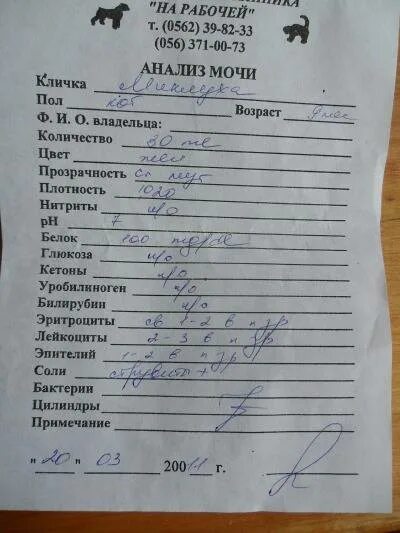 "НА РАБОЧЕЙ"
т. (0562) 39-82-33
(056) 371-00-73
АНАЛИЗ МОЧИ
Кличка Миклуха
Пол кот Возраст 9 мес
Ф. И. О. владельца:
Количество 30 мл
Цвет жел
Прозрачность сл мут
Плотность 1020
Нитриты н/о
pH 7
Белок 100 мг/дл
Глюкоза н/о
Кетоны н/о
Уробилиноген н/о
Билирубин н/о
Эритроциты св 1-2 в п зр
Лейкоциты 2-3 в п зр
Эпителий 1-2 в п зр
Соли струвиты +
Бактерии
Цилиндры
Примечание
"20" 03 20011 г.